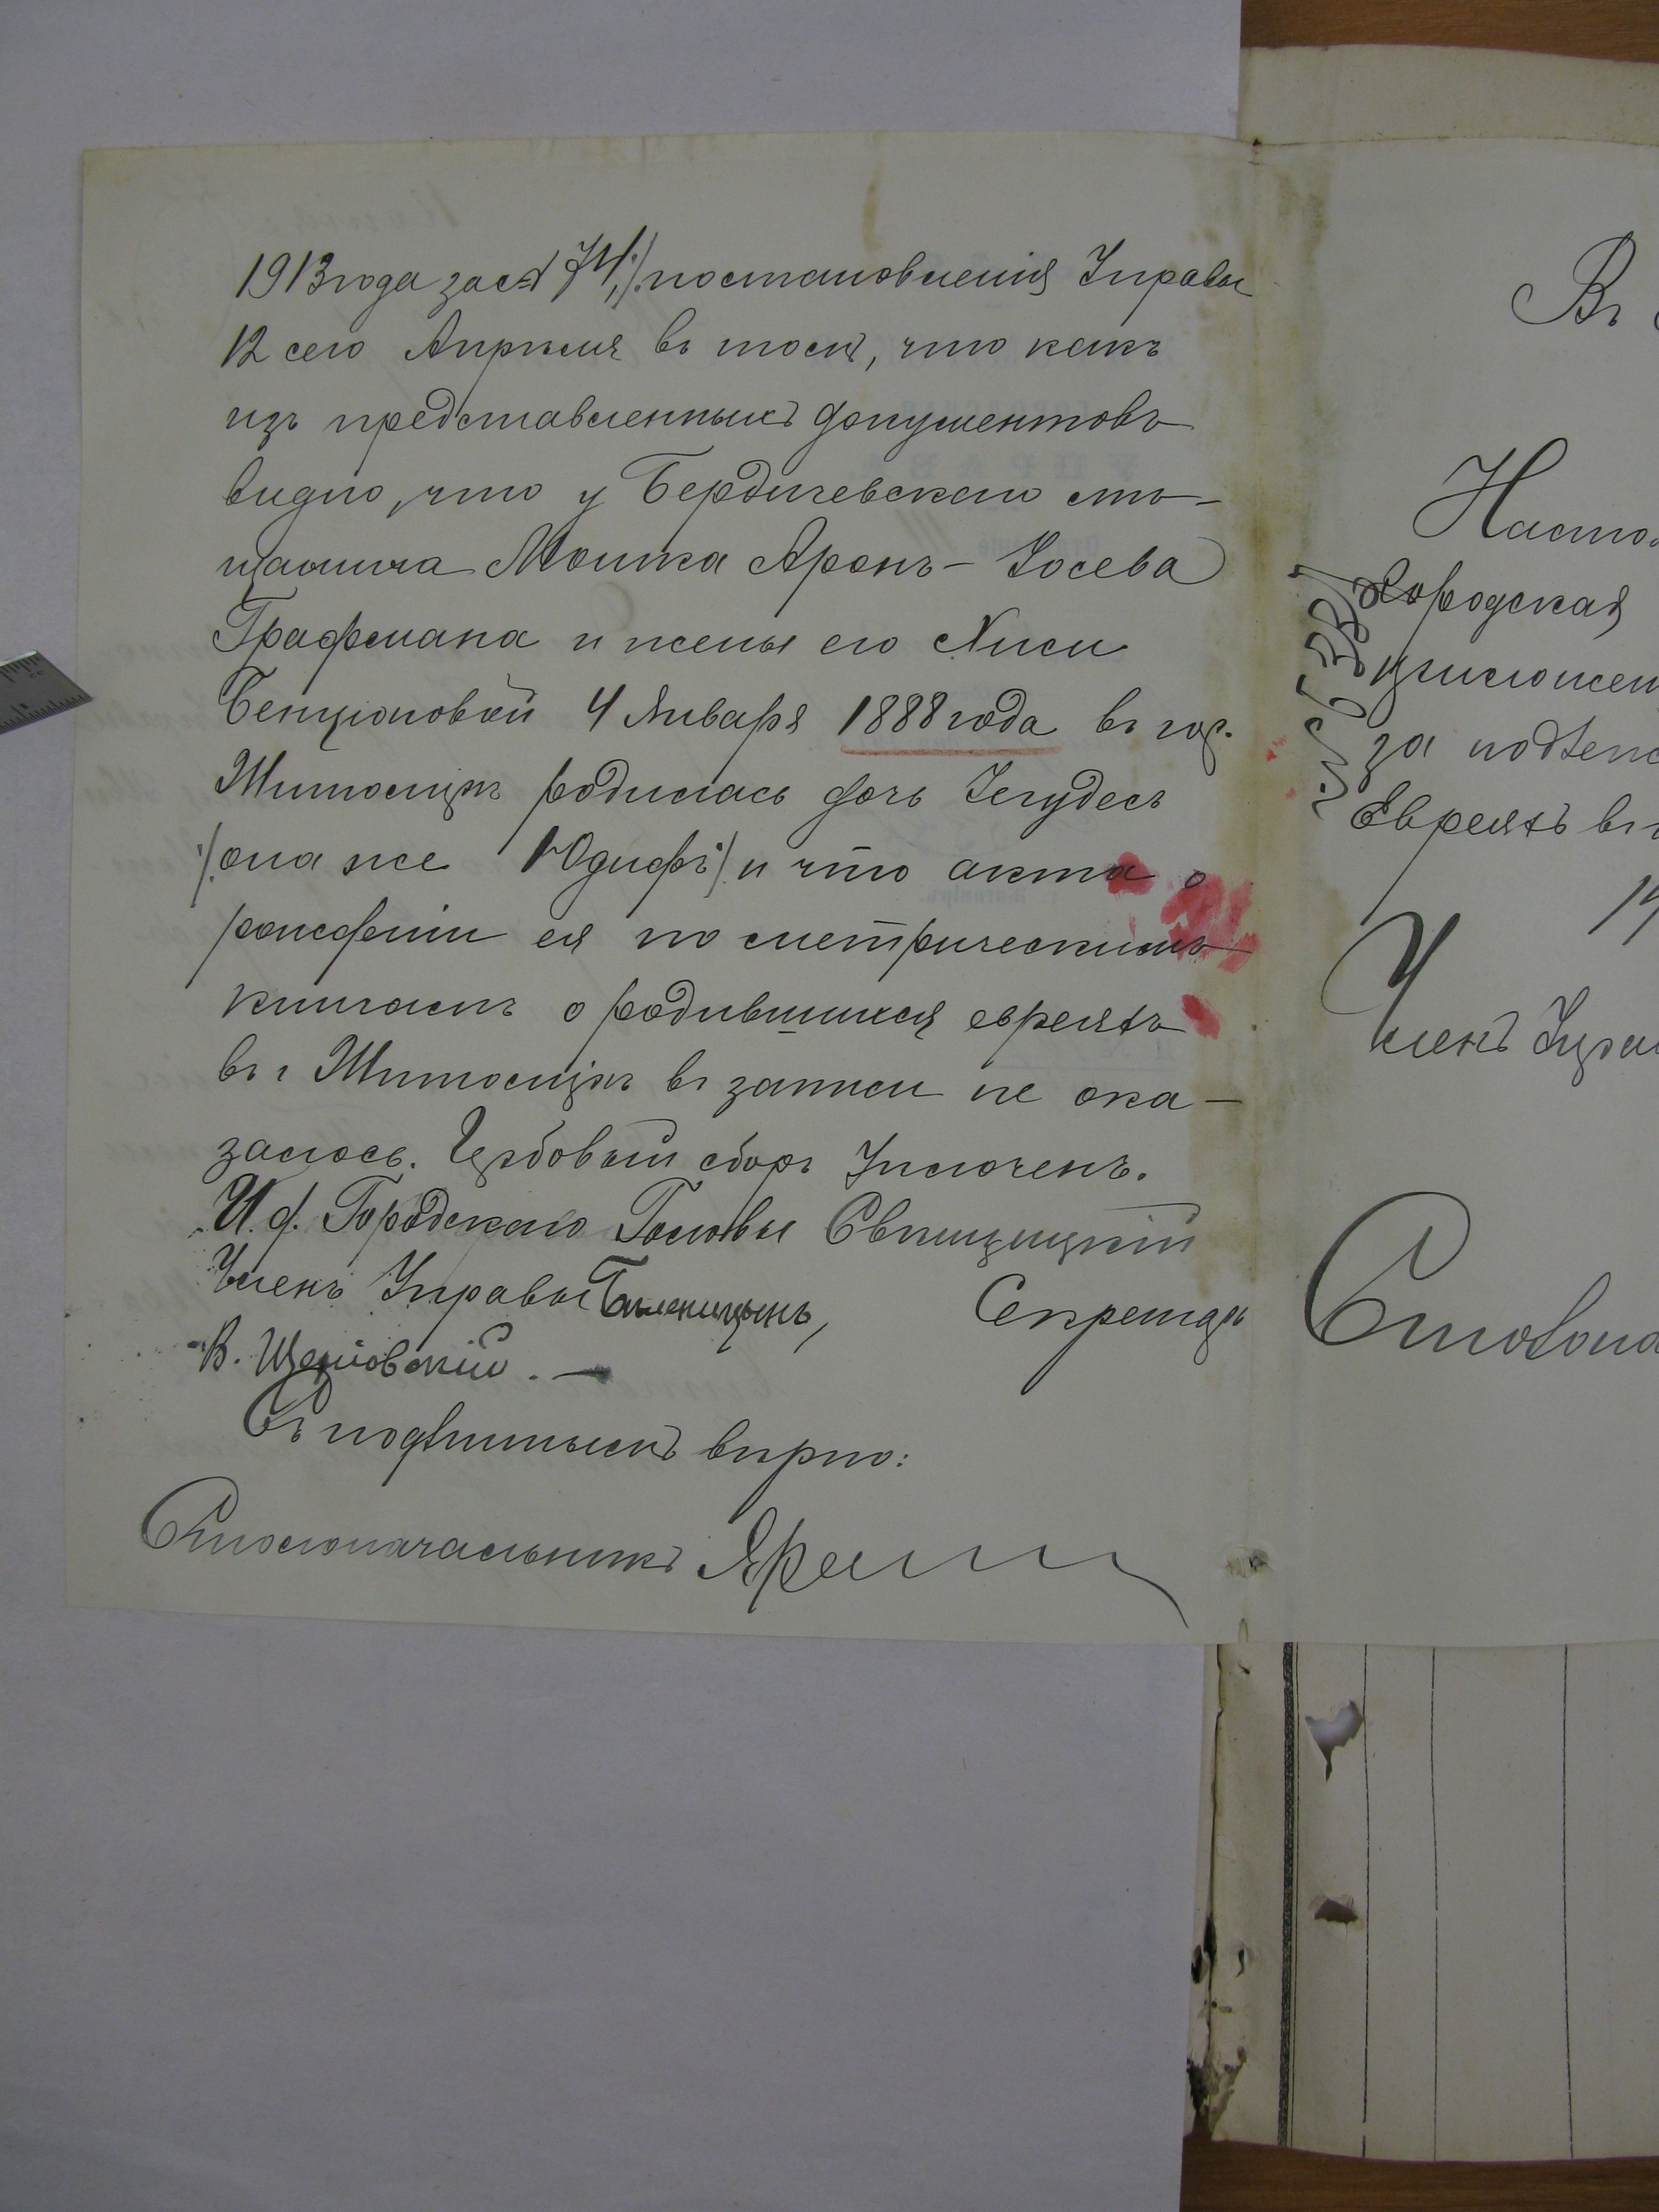 1913 года за № 74,/. постановленія Управы
12 сего Апрѣля въ томъ, что какъ
изъ представленныхъ документовъ
видно, что у Бердичевскаго мѣ-
щанина Мошка Аронъ-Іосева
Графмана и жены его Хиси
Бенціоновой 4 Января 1888 года въ гор.
Житомирѣ родилась дочь Іегудесъ
/она же Юдифь/ и что акта о
рожденіи ея по метрическимъ
книгамъ о родившихся евреяхъ
въ г Житомирѣ въ записи не ока-
залось. Гербовый сборъ Уплоченъ.
И. д. Городскаго Головы
Членъ Управы Секретарь
В.
Съ подлиннымъ вѣрно:
Столоначальникъ
Въ
Насто
Городская
за
Евреяхъ въ
Членъ Упра
Столона